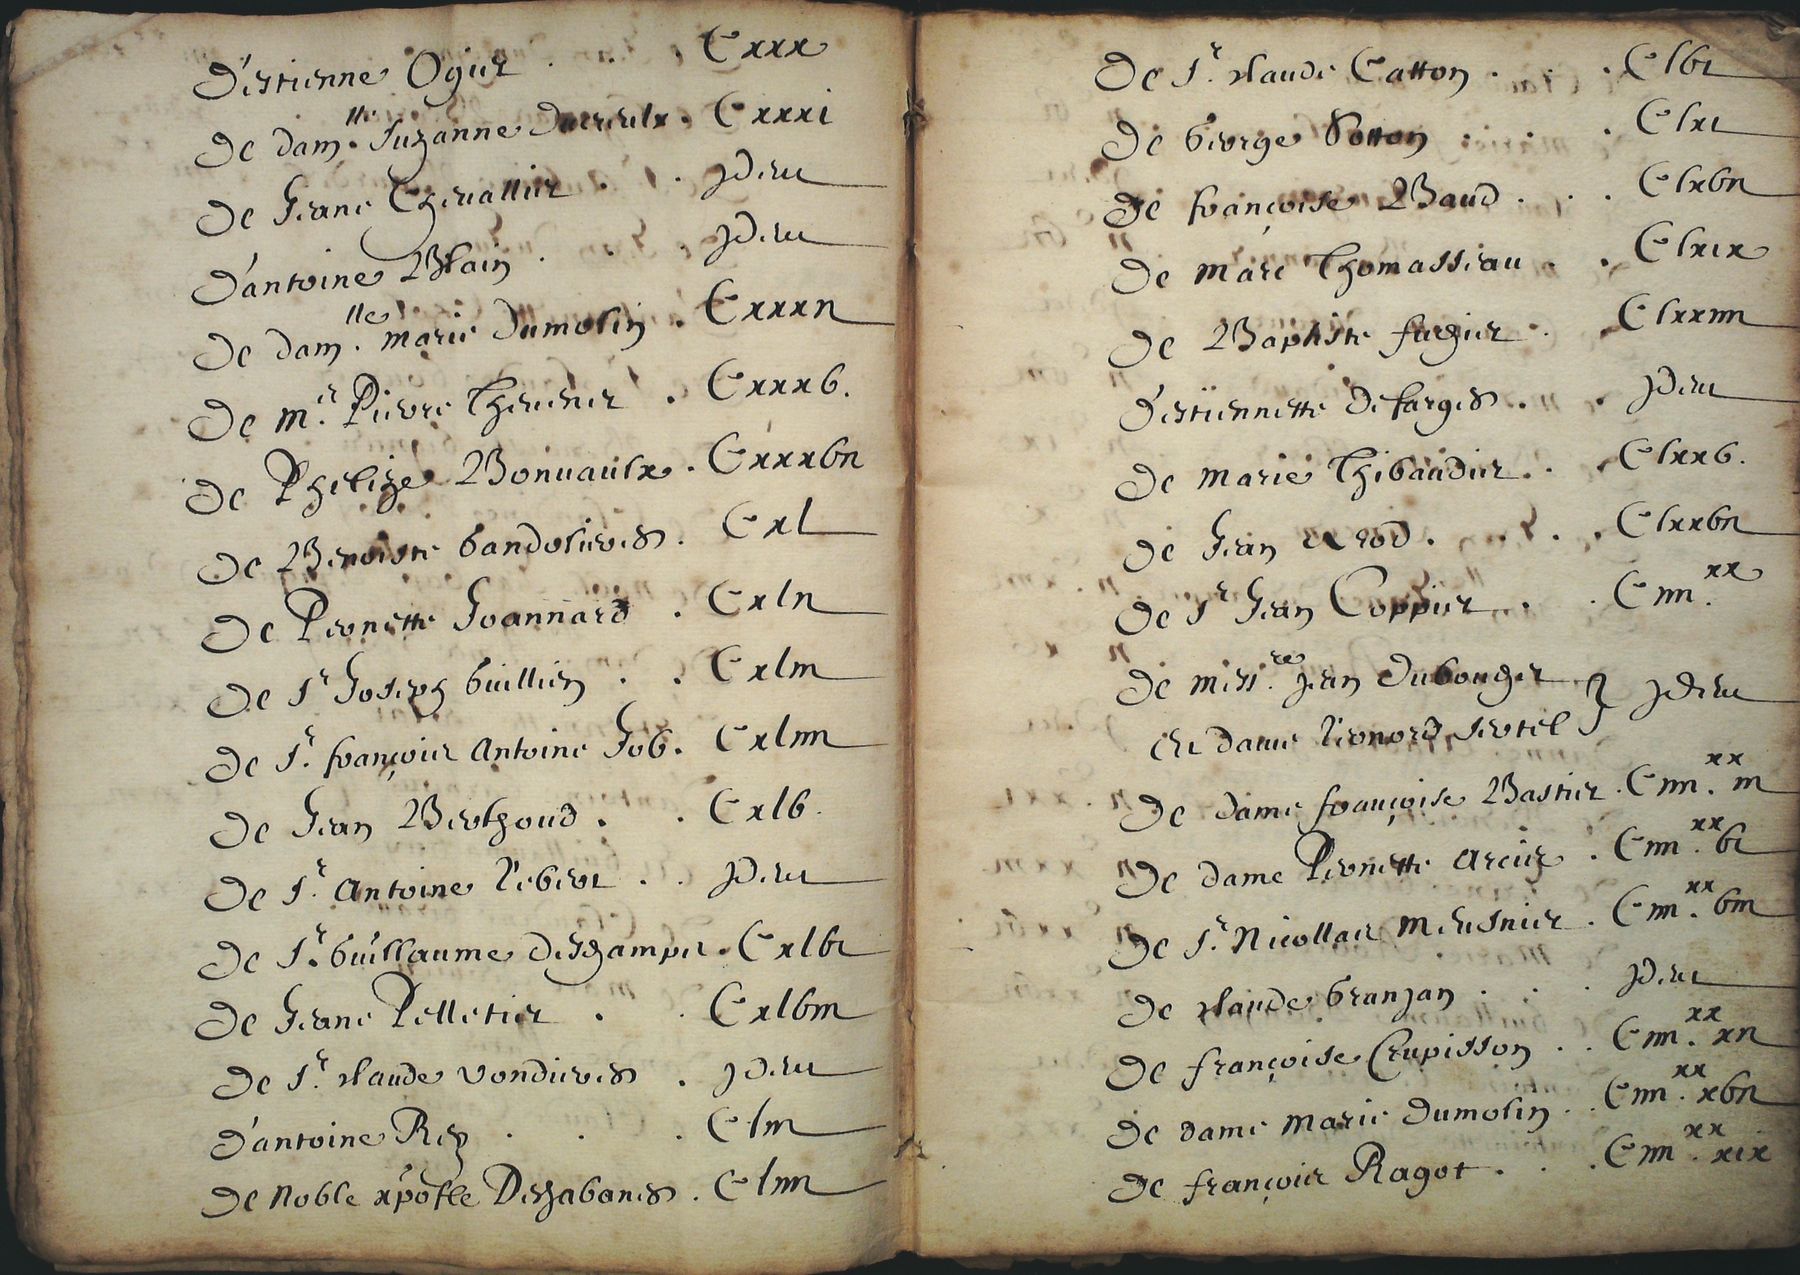 D'estienne Ogier . . . Cxxx
De dam.lle Suzanne Ducreulx . Cxxxi
De Jeane Chevallier . . jdem
D'antoine Blain . . . jdem
De dam.lle marie Dumolin . Cxxxii
De m.r Pierre Thevenet . Cxxxv.
De Phelipe Bonvaulx . Cxxxvii
De Benoiste Gandolieres . Cxl
De Pernette Joannard . Cxlii
De Sr Joseph Guillien . . Cxliii
De Sr. françois Antoine Job. Cxliiii
De Jean Berthoud . . Cxlv.
De Sr. Antoine Lebert . . jdem
De Sr. Guillaume Deschamps . Cxlvi
De Jeane Pelletier . . Cxlviii
De Sr. claude Vondieres . jdem
D'antoine Rey . . . Cliii
De Noble xp̃ofle Deschabanes . Cliiii
De Sr. claude Catton . . . Clvi
De George Cotton . . . Clxi
De françoise Baud . . . Clxvii
De marc Thomasseau . . Clxix
De Baptiste fugier . . Clxxiiii
D'estiennette Defarges . . jdem
De marie Thibaudier . . Clxxv.
De Jean Erod . . . . Clxxvii
De Sr Jean Coppier . . . Ciiii.xx
De miss.re jean Dubouger } jdem
et dame Leonord Sertel
De dame françoise Bastier . Ciiii.xx iii
De dame Pernette Arcis . Ciiii.xx vi
De Sr. Nicollas Meusnier . Ciiii.xx viii
De claude Granjan . . . jdem
De françoise Crupisson . . Ciiii.xx xii
De dame marie Dumolin . . Ciiii.xx xvii
De françois Ragot . . . Ciiii.xx xix